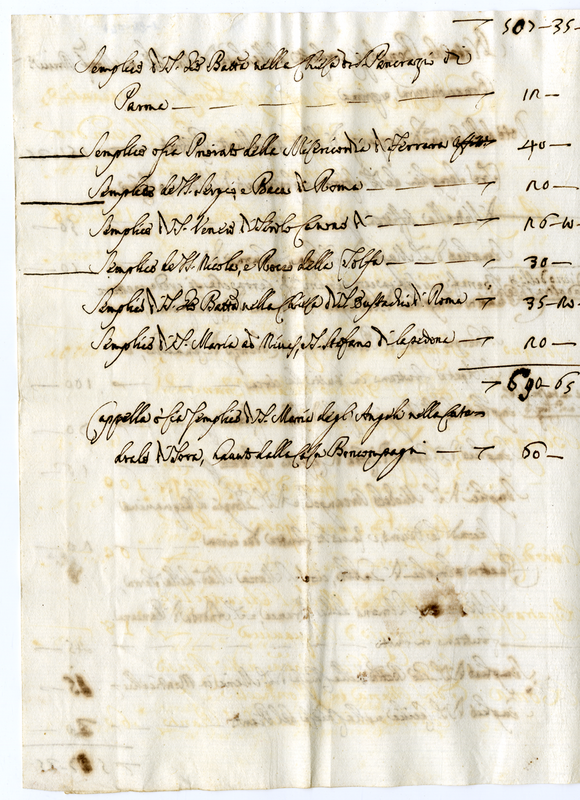 507-35-
Semplice di S. Gio Batta nella Chiesa di S. Pancrazio di
Parma — 12 —
Semplice o sia Priorato della Misericordia di Ferrara 40 —
Semplice de SS. Sergio, e Bacco di Roma — 20 —
Semplice di S. Venere di 26-
Semplice de SS. Nicola, e Rocco della Tolfa — 30 —
Semplice di S. Gio Batta nella Chiesa di S. Eustachio di Roma 35-
Semplice di S. Maria ad Nives, e S. Stefano di 20 —
690-65
Cappella o sia Semplice di S. Maria degli Angeli nella Catte-
drale di Sora, dalla Casa Boncompagni — 60 —